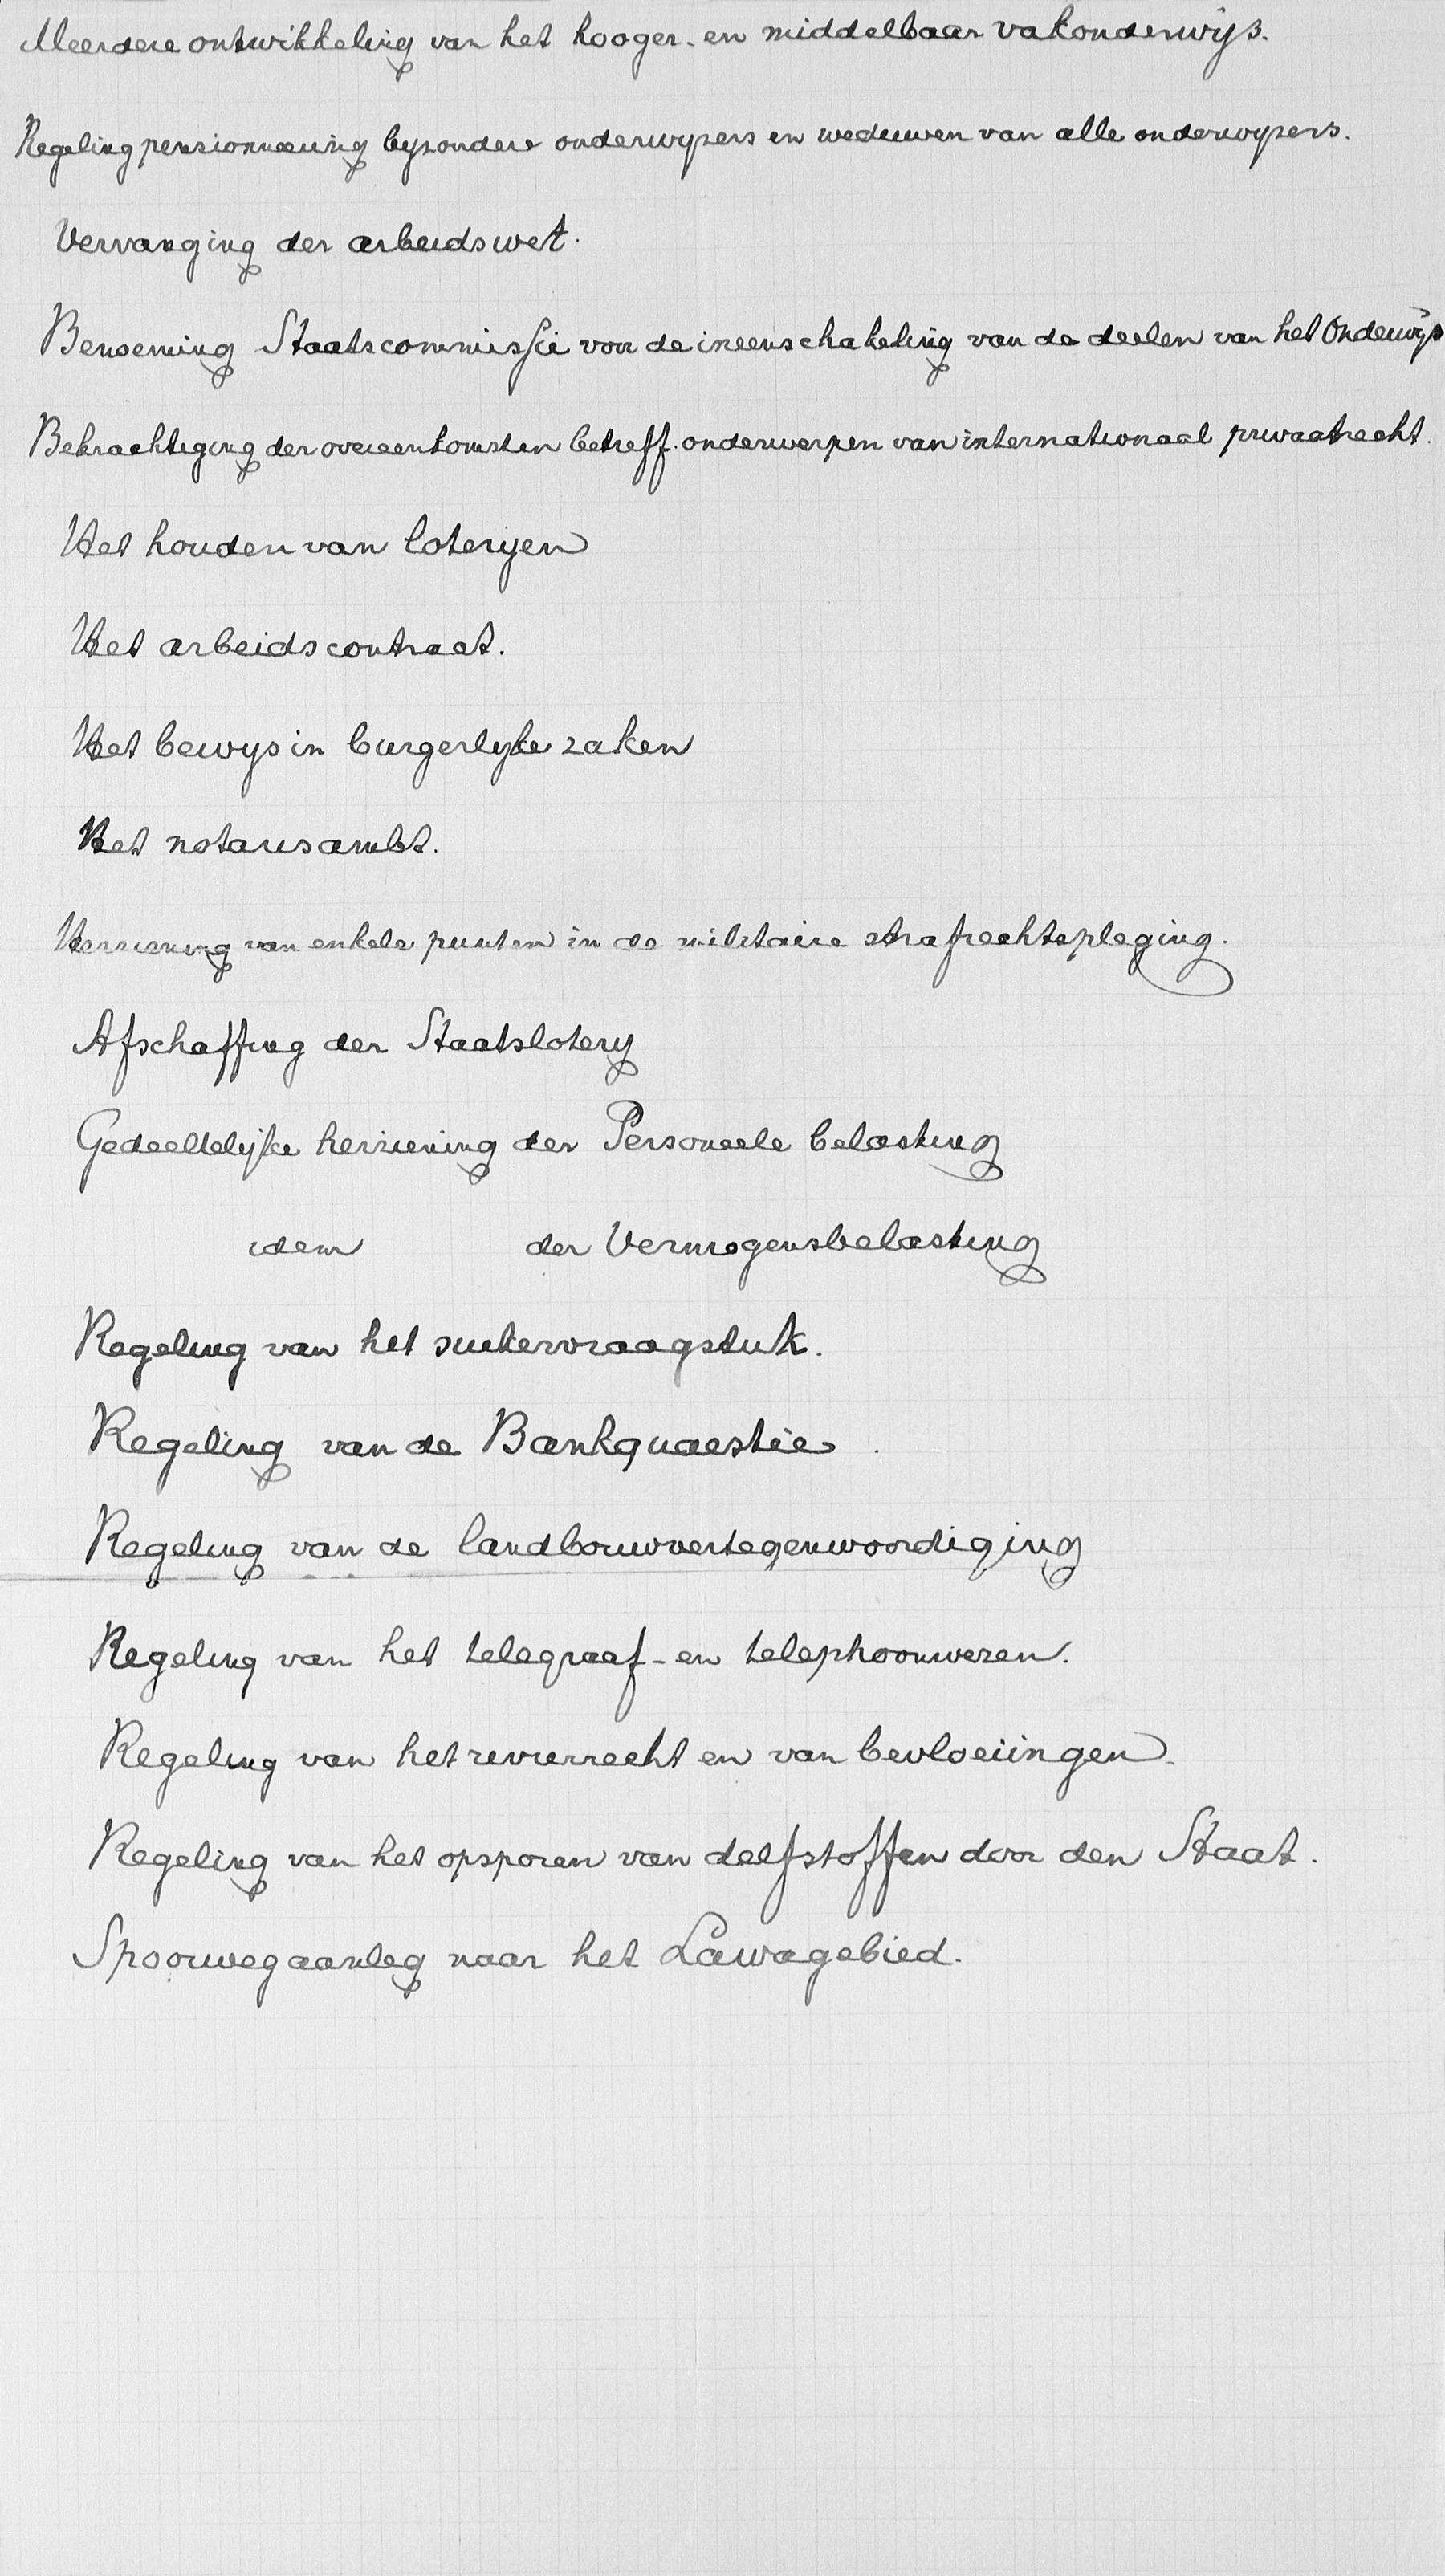 Meerdere ontwikkeling van het hooger- en middelbaar vakonderwijs.
Regeling pensionneering byzondere onderwypers en weduwen van alle onderwypers.
Vervanging der arbeidswet.
Benoeming Staatscommissie voor de ineenschakeling van de deelen van het Onderwijs
Bekrachtiging der overeenkomsten betreff. onderwerpen van internationaal privaatrecht.
Het houden van loteryen
Het arbeidscontract.
Het bewys in burgerlyke zaken
Het notarisambt.
Herziening van enkele punten in de militaire strafrechtspleging.
Afschaffing der Staatslotery
Gedeeltelijke herziening der Personeele belasting
idem der Vermogensbelasting
Regeling van het suikervraagstuk.
Regeling van de Bankquaestie.
Regeling van de landbouwvertegenwoordiging
Regeling van het telegraaf- en telephoonwezen.
Regeling van het rivierrecht en van bevloeiingen.
Regeling van het opsporen van delfstoffen door den Staat.
Spoorwegaanleg naar het Lawagebied.